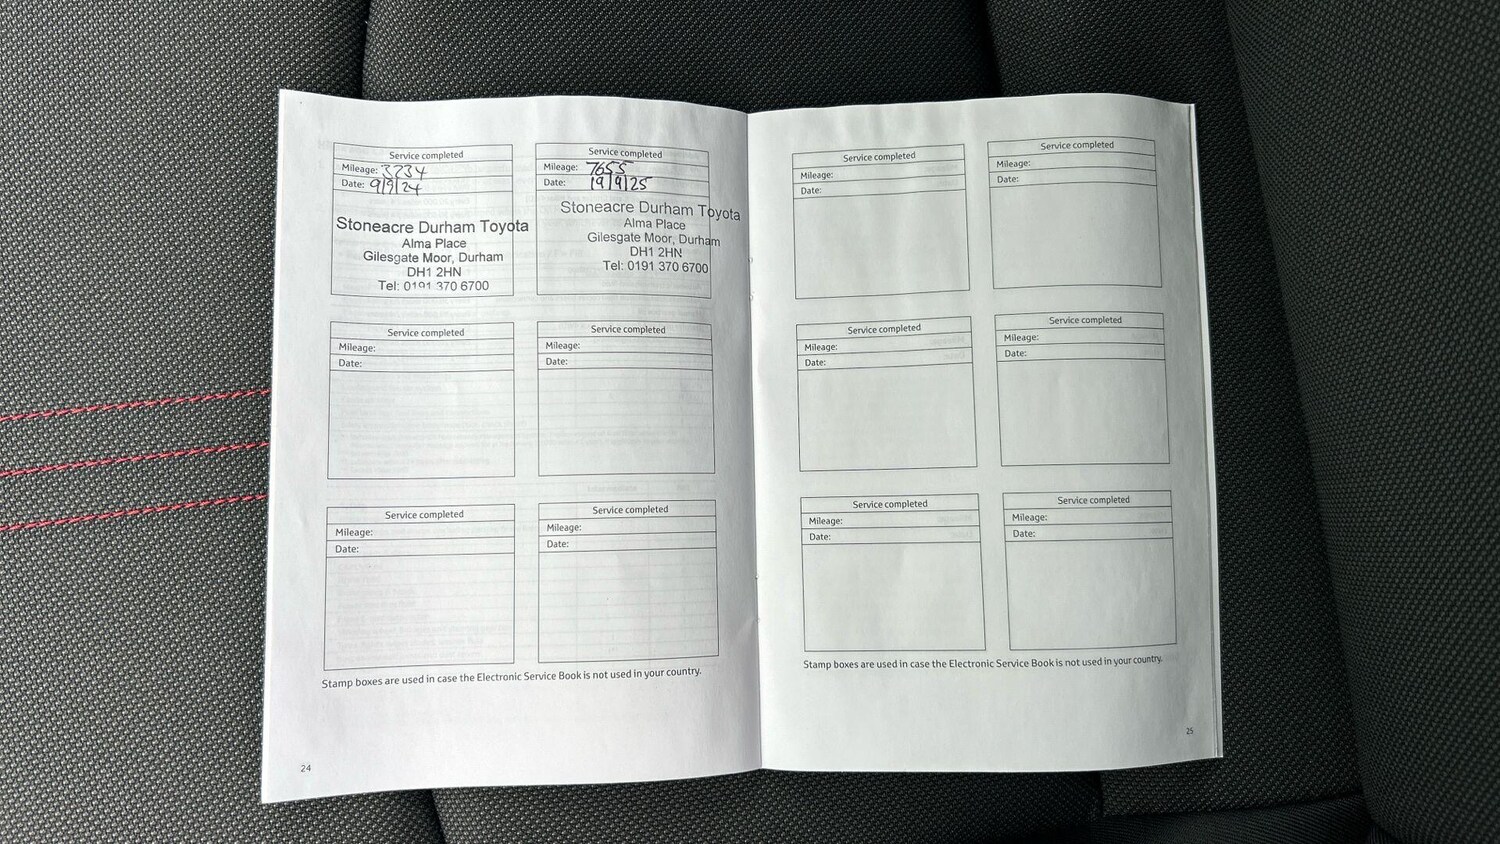 Service completed
Mileage: 3234
Date: 9/9/24
Stoneacre Durham Toyota
Alma Place
Gilesgate Moor, Durham
DH1 2HN
Tel: 0191 370 6700
Service completed
Mileage: 7655
Date: 19/9/25
Stoneacre Durham Toyota
Alma Place
Gilesgate Moor, Durham
DH1 2HN
Tel: 0191 370 6700
Service completed
Mileage:
Date:
Service completed
Mileage:
Date:
Service completed
Mileage:
Date:
Service completed
Mileage:
Date:
Stamp boxes are used in case the Electronic Service Book is not used in your country.
24
Service completed
Mileage:
Date:
Service completed
Mileage:
Date:
Service completed
Mileage:
Date:
Service completed
Mileage:
Date:
Service completed
Mileage:
Date:
Service completed
Mileage:
Date:
Stamp boxes are used in case the Electronic Service Book is not used in your country.
25